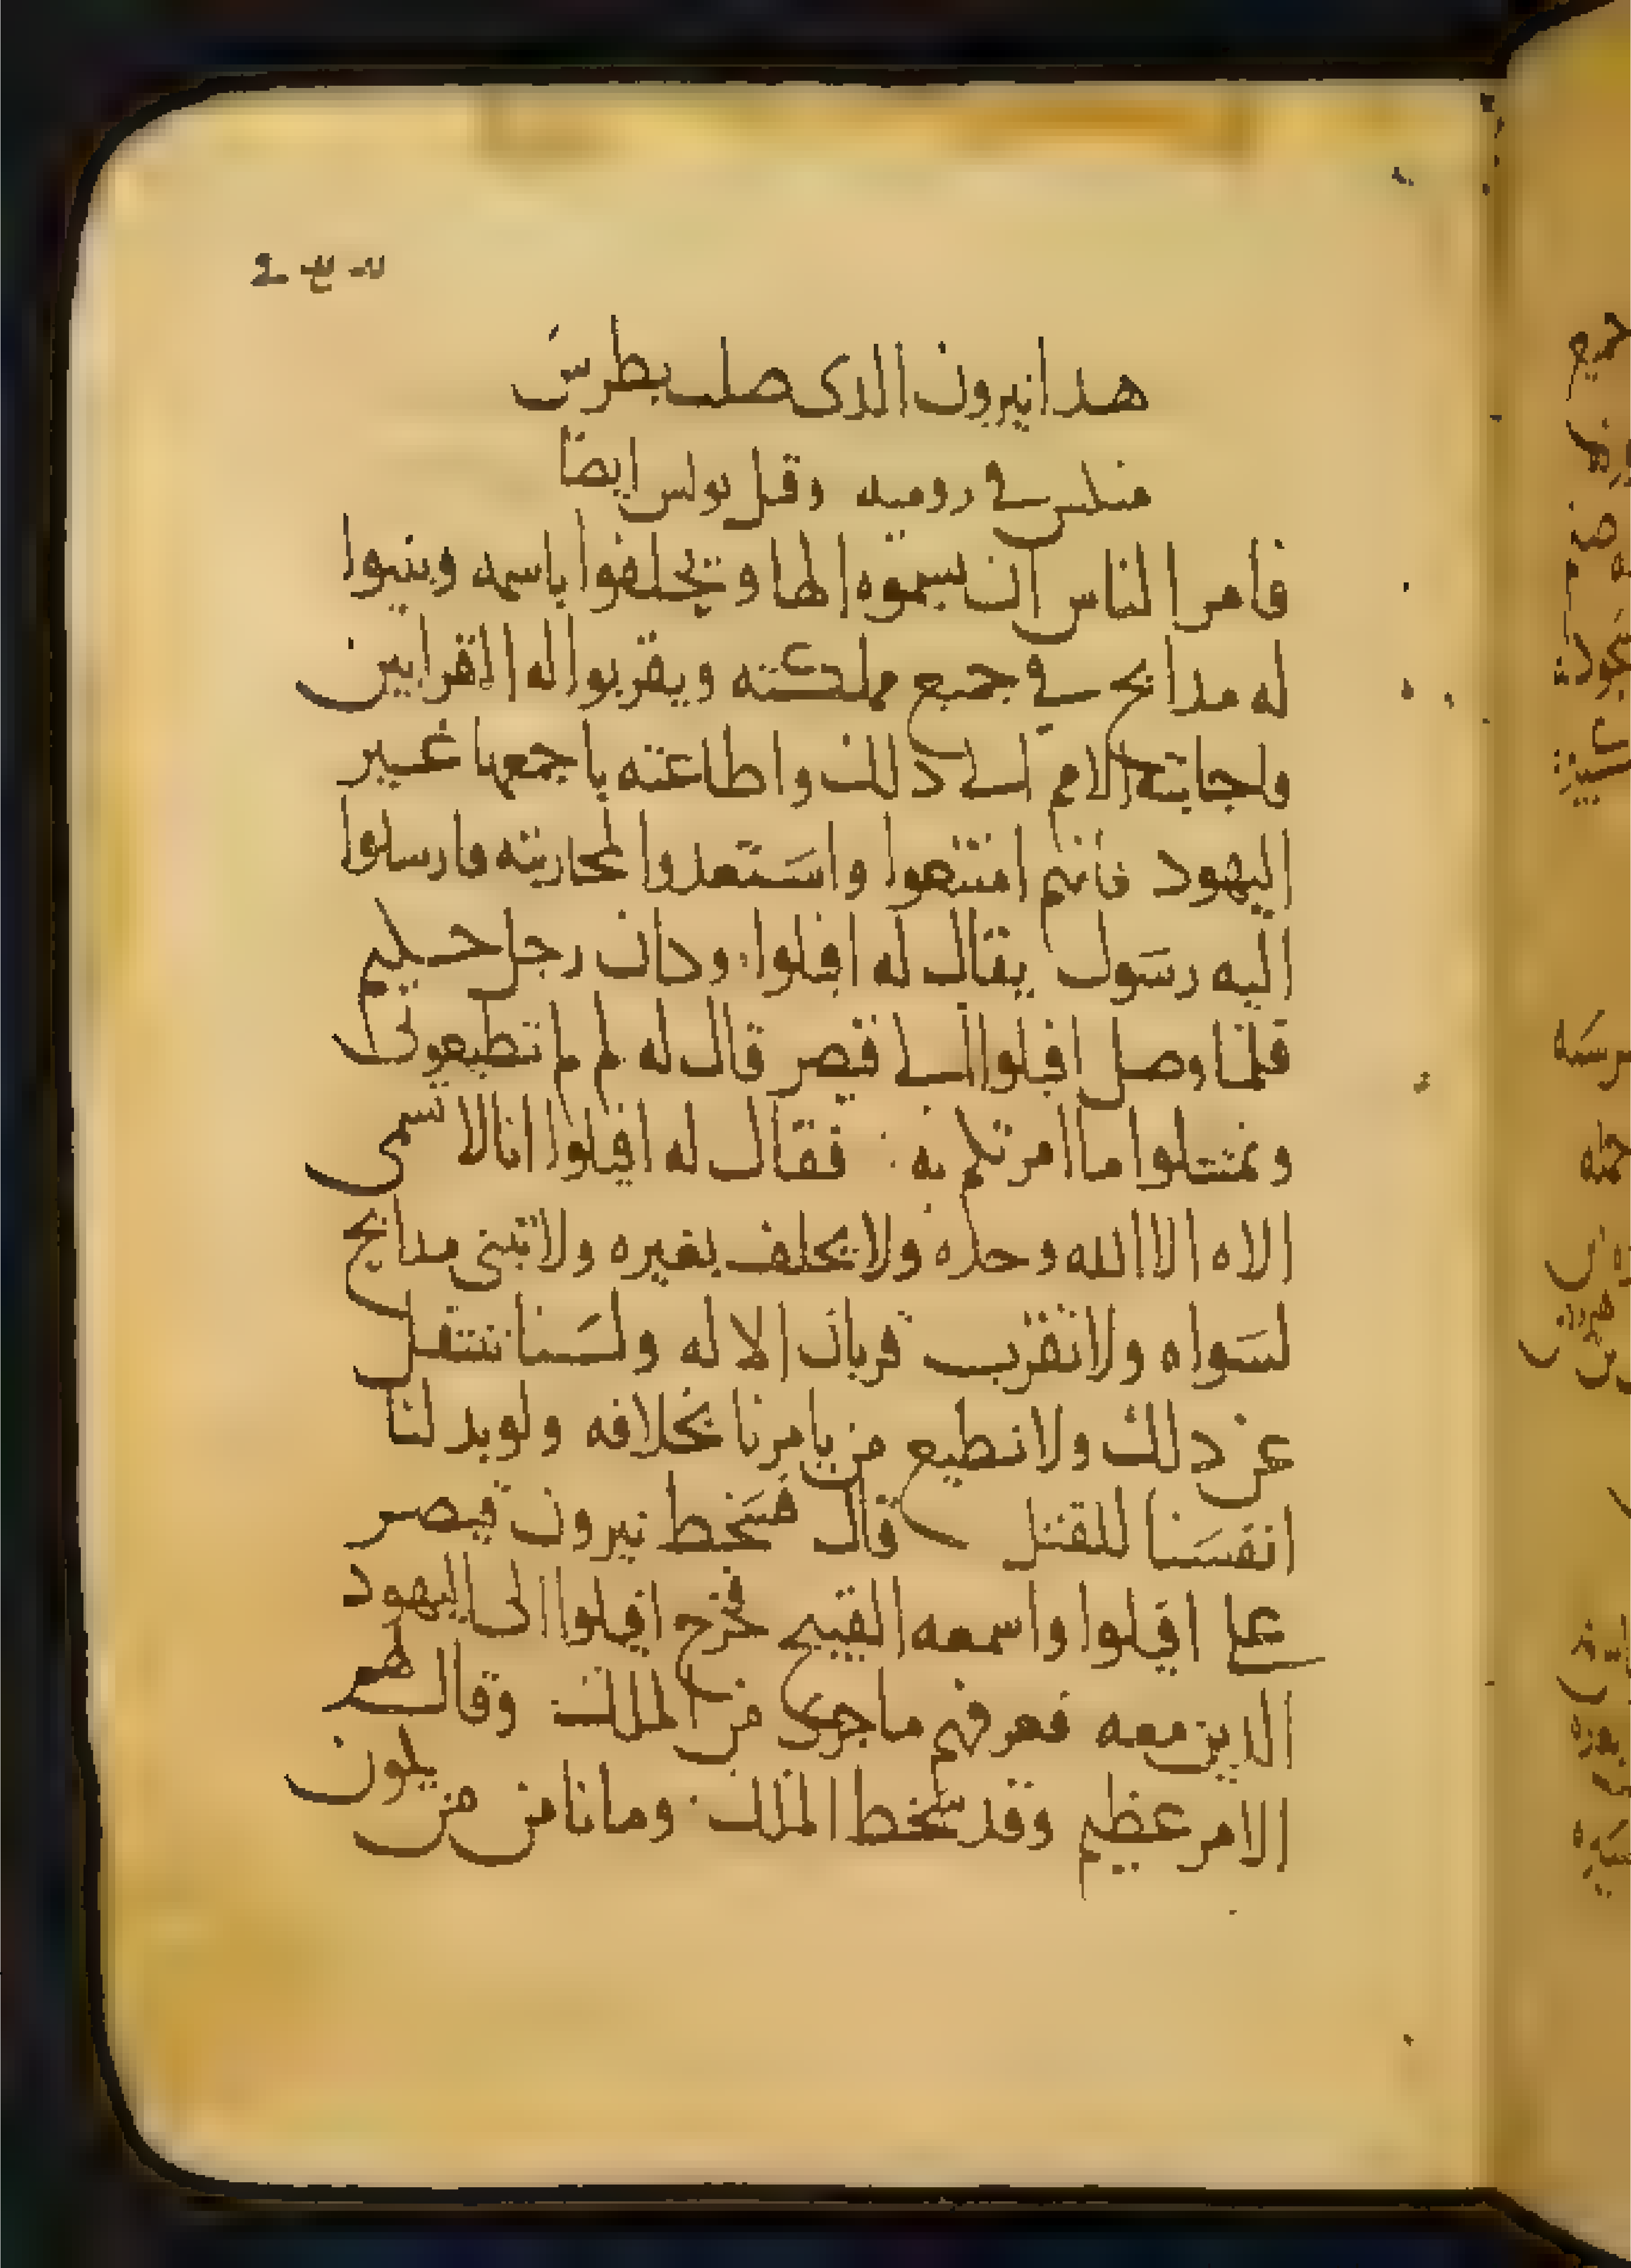 هدا نيرون الدى صلب بطرس
منكس في روميه وقتل بولس ايضا
فامر الناس ان يسموه الها ويحلفوا باسمه ويبنوا
له مدابح في جميع مملكته ويقربوا له القرابين
واجابته الامم الى دلك واطاعته باجمعها غير
اليهود فانهم امتنعوا واستعدوا لمحاربته فارسلوا
اليه رسول يقال له افيلوا وكان رجل حكيم
فلما وصل افيلوا الى قيصر قال له لم لم تطيعونى
وتمتتلوا ما امرتكم به فقال له افيلوا انا لا نسمى
الاه الا الله وحده ولا نحلف بغيره ولا نبنى مدابح
لسواه ولا نقرب قربان الا له ولسنا ننتقل
عن دلك ولا نطيع من يامرنا بخلافه ولو بدلنا
انفسنا للقتل قال فسخط نيرون قيصر
على افيلوا واسمعه القبيح فخرج افيلوا الى اليهود
الدين معه فعرفهم ما جرى من الملك وقال لهم
الامر عظيم وقد سخط الملك وما نامن من يكون